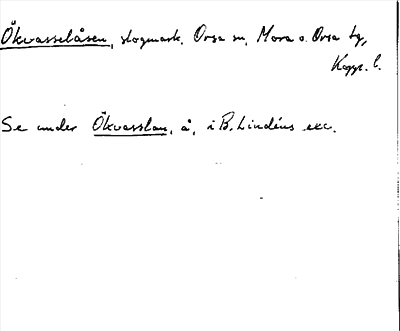 Ökvasselåsen, skogmark. Orsa sn, Mora o. Orsa tg,
Kopp. l.
Se under Ökvasslan, å, i B. Lindéns exc.